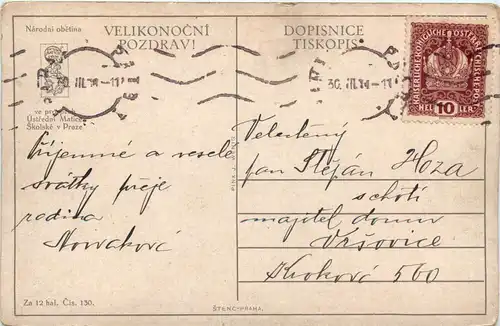 Národní obětina
VELIKONOČNÍ
POZDRAV!
DOPISNICE
TISKOPIS
ve prospěch
Ústřední Matice
Školské v Praze
KAISERLICHE KÖNIGLICHE ÖSTERREICHISCHE POST
HELLER
10
30. III.
Příjemné a veselé
svátky přeje
rodina
Nováková
Velectěný
pan Štěpán Hoza
majitel domu
Vršovice
Krokova 560
Za 12 hal. Čís. 150.
ŠTENC-PRAHA.